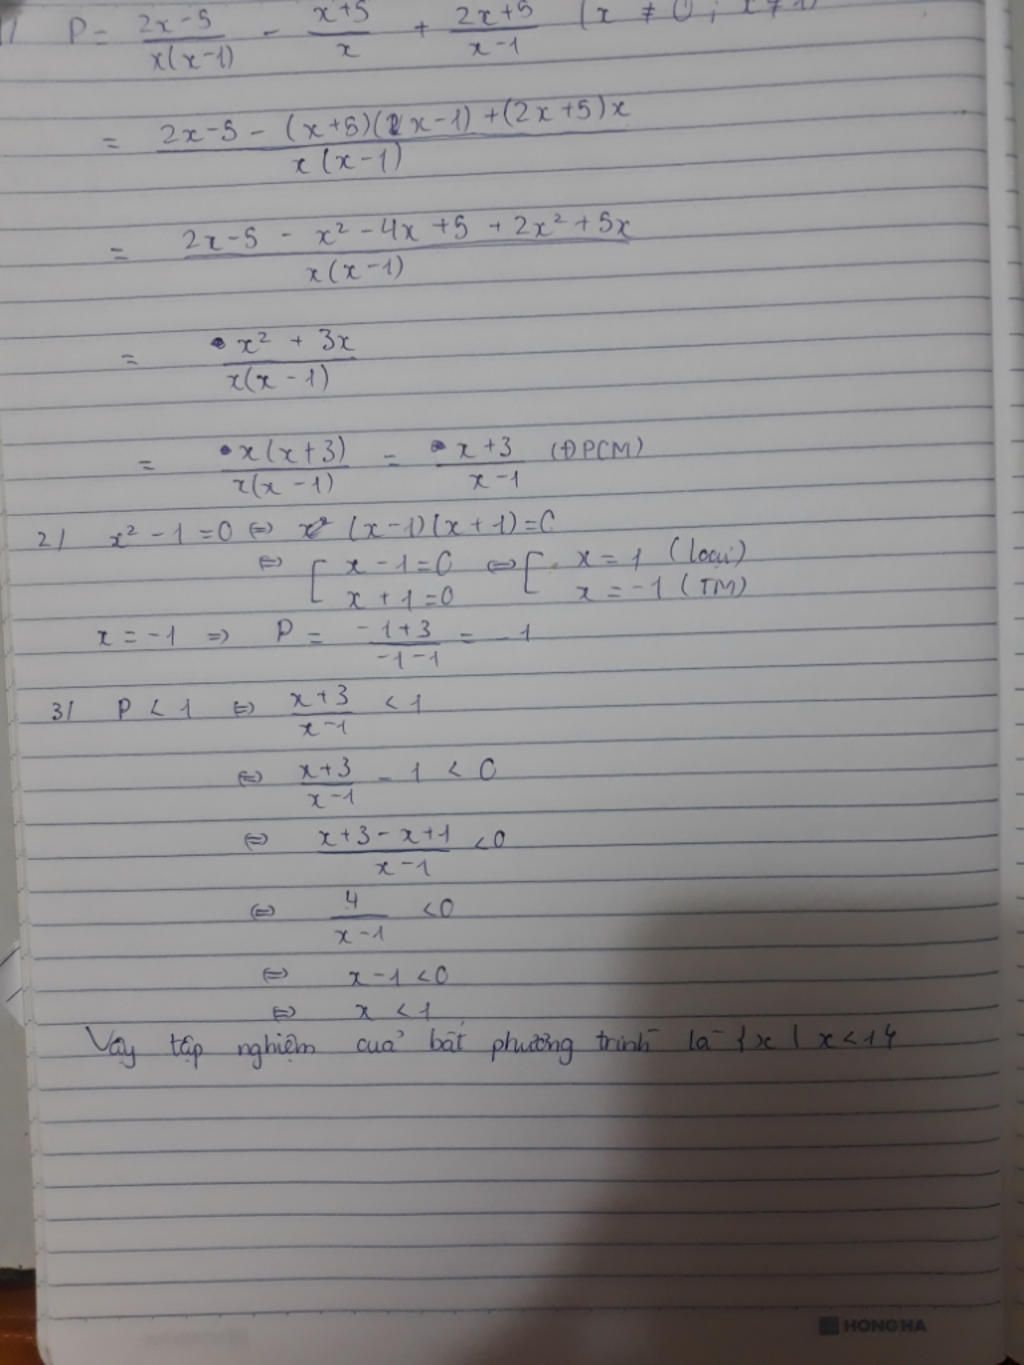 1/ P = \frac{2x-5}{x(x-1)} - \frac{x+5}{x} + \frac{2x+5}{x-1} (x ≠ 0 ; x ≠ 1)
= \frac{2x-5 - (x+5)(x-1) + (2x+5)x}{x(x-1)}
= \frac{2x-5 - x² - 4x + 5 + 2x² + 5x}{x(x-1)}
= \frac{x² + 3x}{x(x-1)}
= \frac{x(x+3)}{x(x-1)} = \frac{x+3}{x-1} (ĐPCM)
2/ x² - 1 = 0 ⇔ (x-1)(x+1) = 0
⇔ [ x - 1 = 0 ⇔ [ x = 1 (loại)
x + 1 = 0 x = -1 (TM)
x = -1 ⇒ P = \frac{-1+3}{-1-1} = -1
3/ P < 1 ⇔ \frac{x+3}{x-1} < 1
⇔ \frac{x+3}{x-1} - 1 < 0
⇔ \frac{x+3-x+1}{x-1} < 0
⇔ \frac{4}{x-1} < 0
⇔ x - 1 < 0
⇔ x < 1
Vậy tập nghiệm của bất phương trình là {x | x < 1}
HONG HA